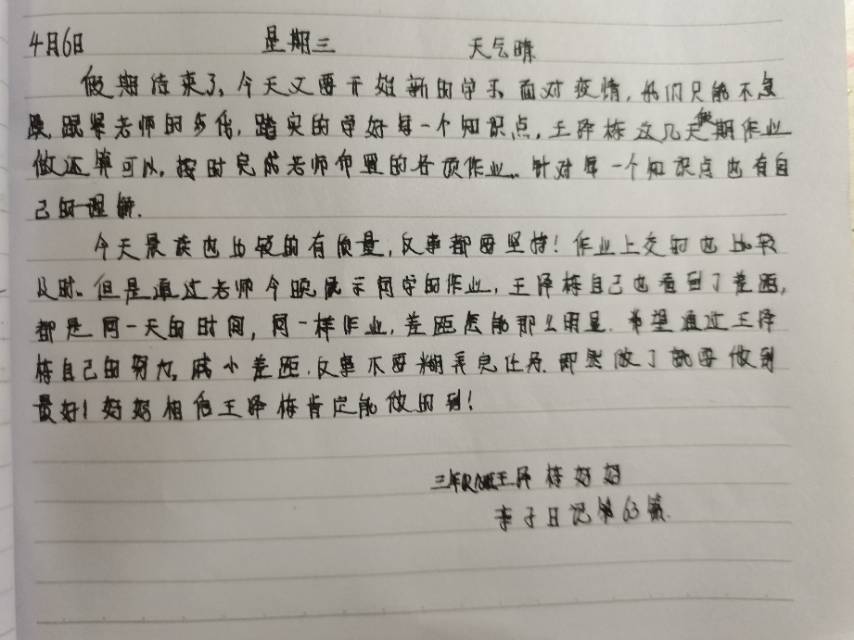 4月6日 星期三 天气晴
假期结束了,今天又要开始新的学习,面对疫情,我们只能不急
躁,跟紧老师的步伐,踏实的学好每一个知识点,王泽栋这几天假期作业
做还算可以,按时完成老师布置的各项作业、针对每一个知识点也有自
己的理解.
今天晨读也比较的有质量,凡事都要坚持!作业上交的也比较
及时、但是通过老师今晚展示同学的作业,王泽栋自己也看到了差距,
都是同一天的时间,同一样作业,差距怎能那么明显.希望通过王泽
栋自己的努力,减小差距,凡事不要糊弄完任务.即然做了就要做到
最好!妈妈相信王泽栋肯定能做的到!
王泽栋妈妈
亲子日记第63篇.